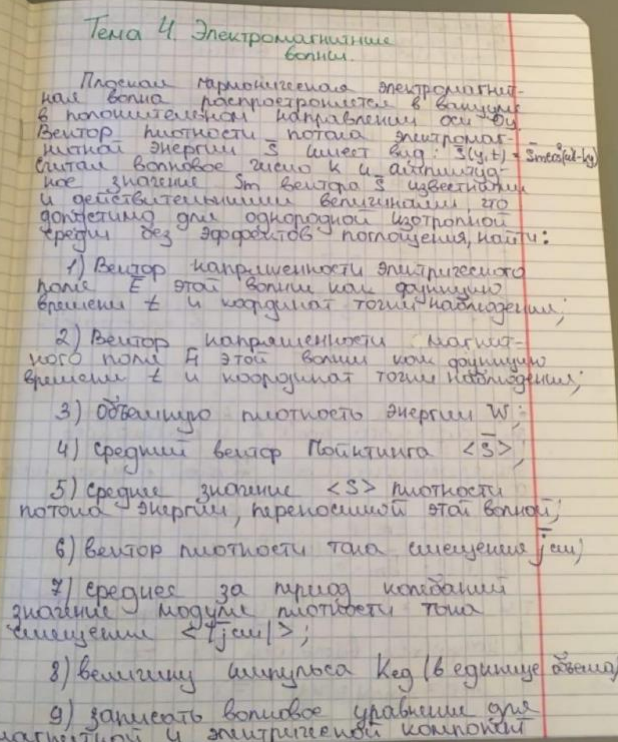 Тема 4. Электромагнитные
волны.
Плоская гармоническая электромагнит-
ная волна распространяется в вакууме
в положительном направлении оси Oy.
Вектор плотности потока электромаг-
нитной энергии S̄ имеет вид: S̄(y,t) = S̄m cos²(ωt-ky)
считая волновое число k и амплитуд-
ное значение Sm вектора S̄ известными
и действительными величинами, что
допустимо для однородной изотропной
среды без эффектов поглощения, найти:
1) Вектор напряженности электрического
поля Ē этой волны как функцию
времени t и координат точки наблюдения;
2) Вектор напряженности магнит-
ного поля H̄ этой волны как функцию
времени t и координат точки наблюдения;
3) Объемную плотность энергии W;
4) Средний вектор Пойнтинга <S̄>;
5) Среднее значение <S> плотности
потока энергии, переносимой этой волной;
6) вектор плотности тока смещения j̄см;
7) среднее за период колебаний
значение модуля плотности тока
смещения <|j̄см|>;
8) величину импульса Kед (в единице объема)
9) записать волновое уравнение для
магнитной и электрической компонент